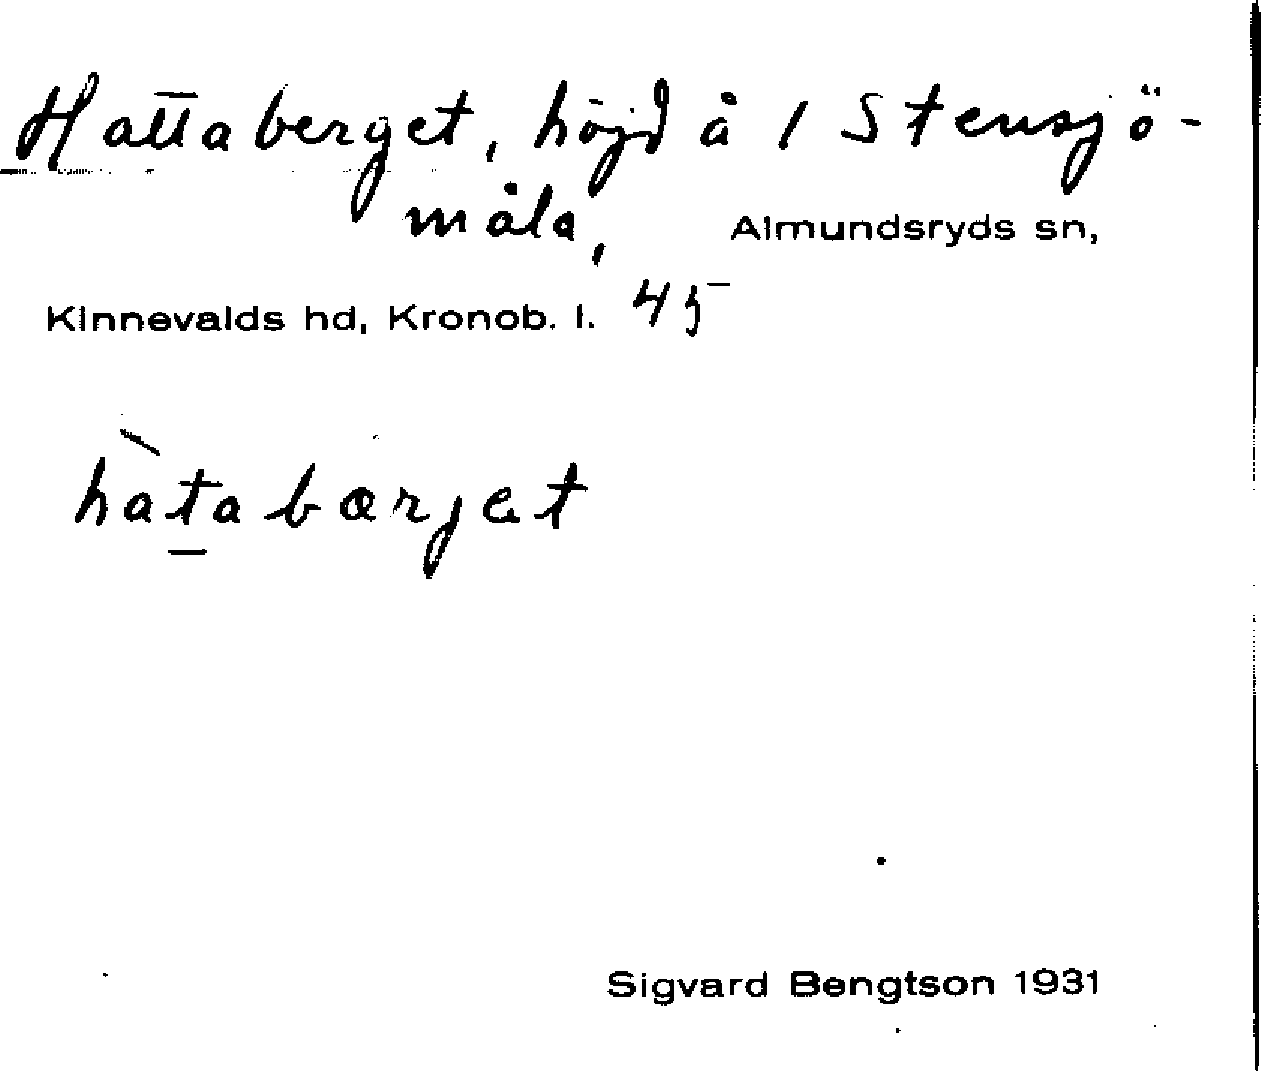 Hattaberget, höjd å / Stensjö-
måla, Almundsryds sn,
Kinnevalds hd, Kronob. l. 45
hàt̲abærjet
Sigvard Bengtson 1931